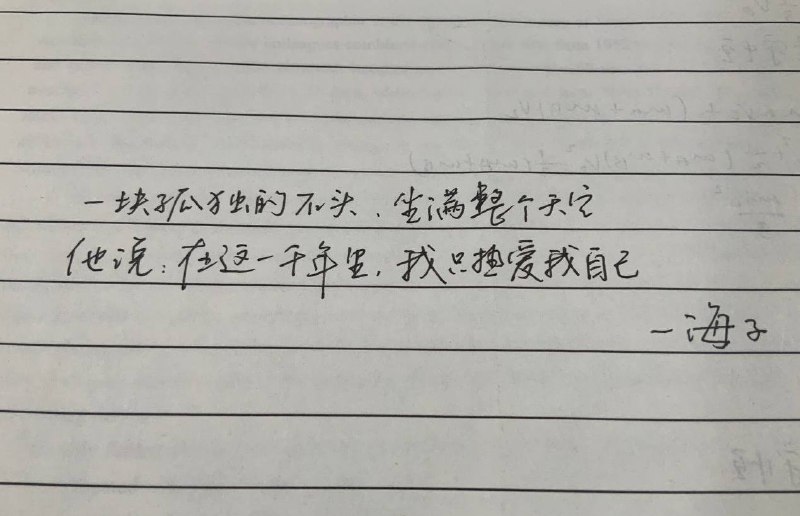 一块孤独的石头、坐满整个天空
他说:在这一千年里,我只热爱我自己
—海子